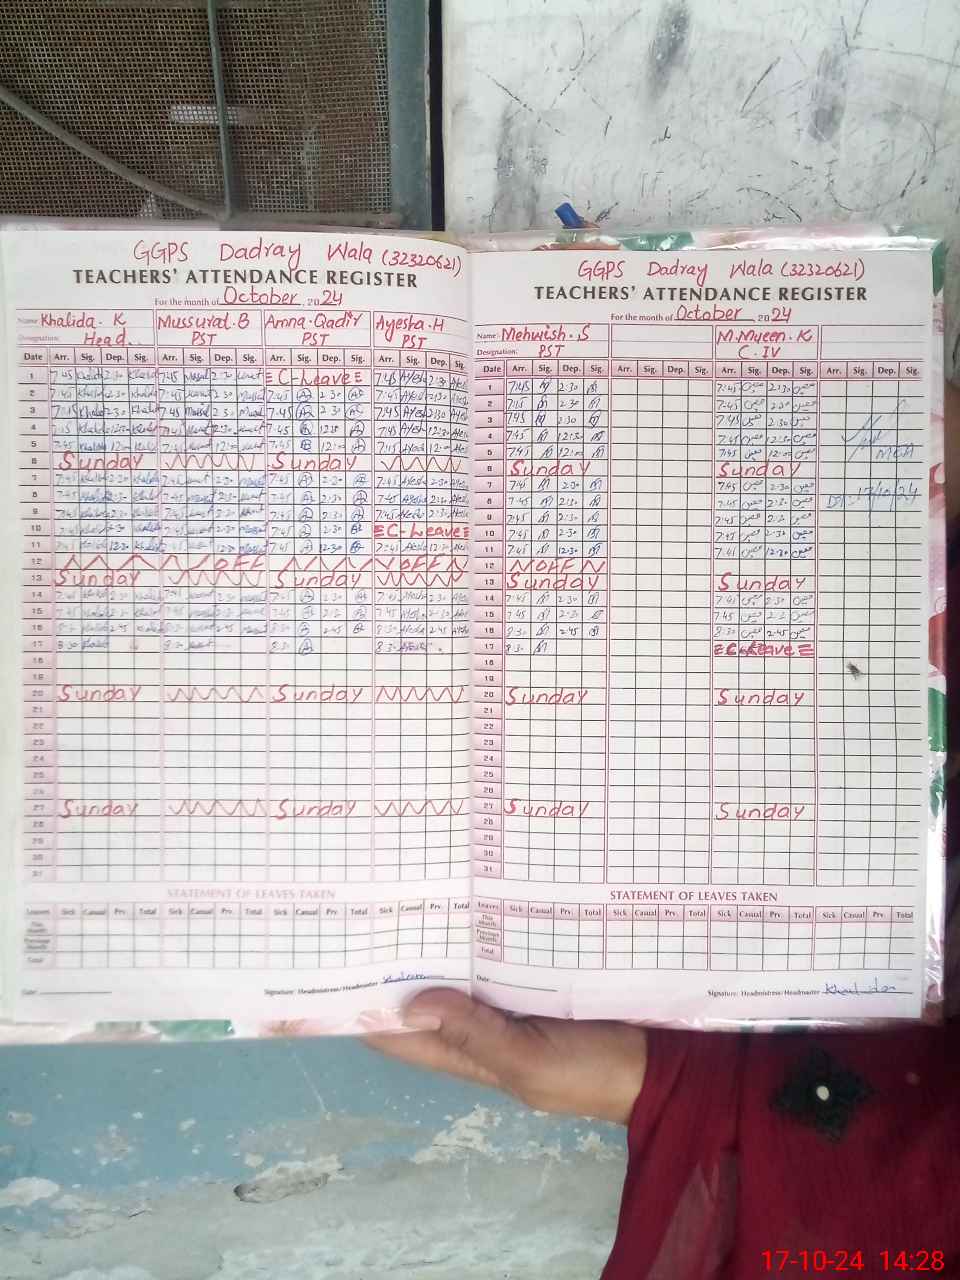 GGPS Dadray Wala (32320621)
TEACHERS' ATTENDANCE REGISTER
For the month of October, 2024
Name: Khalida. K Mussurat. B Amna. Qadir Ayesha. H
Designation: Head. PST PST PST
Date Arr. Sig. Dep. Sig. Arr. Sig. Dep. Sig. Arr. Sig. Dep. Sig. Arr. Sig. Dep. Sig.
1 7:45 2:30 7:45 2:30 C-Leave 7:45 2:30
2 7:45 2:30 7:45 2:30 7:45 2:30 7:45 2:30
3 7:45 2:30 7:45 2:30 7:45 2:30 7:45 2:30
4 7:45 12:30 7:45 7:45 12:30 7:45 12:30
5 7:45 12:00 7:45 7:45 12:00 7:45 12:00
6 Sunday Sunday
7 7:45 2:30 7:45 2:30 7:45 2:30 7:45 2:30
8 7:45 2:30 7:45 2:30 7:45 2:30 7:45 2:30
9 7:45 2:30 7:45 2:30 7:45 2:30 7:45 2:30
10 7:45 2:30 7:45 2:30 7:45 2:30 C-Leave
11 7:45 12:30 7:45 12:30 7:45 12:30 7:45 12:30
12 OFF OFF
13 Sunday Sunday
14 7:45 2:30 7:45 2:30 7:45 2:30 7:45 2:30
15 7:45 7:45 7:45 7:45
16 2:45 2:45 2:45 2:45
17 8:30 8:30 8:30 8:30
18
19
20 Sunday Sunday
21
22
23
24
25
26
27 Sunday Sunday
28
29
30
31
STATEMENT OF LEAVES TAKEN
Leaves Sick Casual Prv. Total Sick Casual Prv. Total Sick Casual Prv. Total Sick Casual Prv. Total
This Month
Previous Month
Total
Date
Signature: Headmistress/Headmaster
GGPS Dadray Wala (32320621)
TEACHERS' ATTENDANCE REGISTER
For the month of October, 2024
Name: Mehwish. S M. Mueen. K
Designation: PST C. IV
Date Arr. Sig. Dep. Sig. Arr. Sig. Dep. Sig. Arr. Sig. Dep. Sig. Arr. Sig. Dep. Sig.
1 7:45 2:30 7:45 معین 2:30 معین
2 7:45 2:30 7:45 معین 2:30 معین
3 7:45 2:30 7:45 معین 2:30 معین
4 7:45 12:30 7:45 معین 12:30 معین
5 7:45 12:00 7:45 معین 12:00 معین MEA
6 Sunday Sunday
7 7:45 2:30 7:45 معین 2:30 معین 17/10/24
8 7:45 2:30 7:45 معین 2:30 معین
9 7:45 2:30 7:45 معین 2:30 معین
10 7:45 2:30 7:45 معین 2:30 معین
11 7:45 12:30 7:45 معین 12:30 معین
12 OFF
13 Sunday Sunday
14 7:45 2:30 7:45 معین 2:30 معین
15 7:45 2:30 7:45 معین معین
16 8:30 2:45 8:30 معین 2:45 معین
17 8:30 C-Leave
18
19
20 Sunday Sunday
21
22
23
24
25
26
27 Sunday Sunday
28
29
30
31
STATEMENT OF LEAVES TAKEN
Leaves Sick Casual Prv. Total Sick Casual Prv. Total Sick Casual Prv. Total Sick Casual Prv. Total
This Month
Previous Month
Total
Date
Signature: Headmistress/Headmaster Khalida
17-10-24 14:28